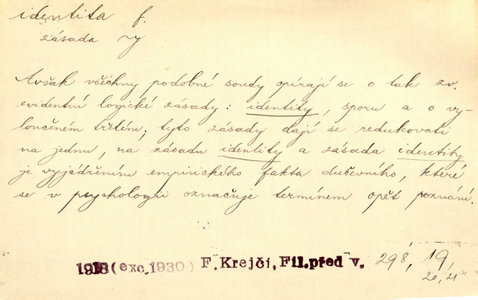 identita f.
zásada ry
Avšak všechny podobné soudy opírají se o tak zv.
evidentní logické zásady: identity, sporu a o vy-
loučeném třetím; tyto zásady dají se redukovati
na jednu, na zásadu identity a zásada identity
je vyjádřením empirického fakta duševního, které
se v psychologii označuje termínem opět poznání.
1918 (exc. 1930) F. Krejčí, Fil. před v. 298, 19,
20, 21